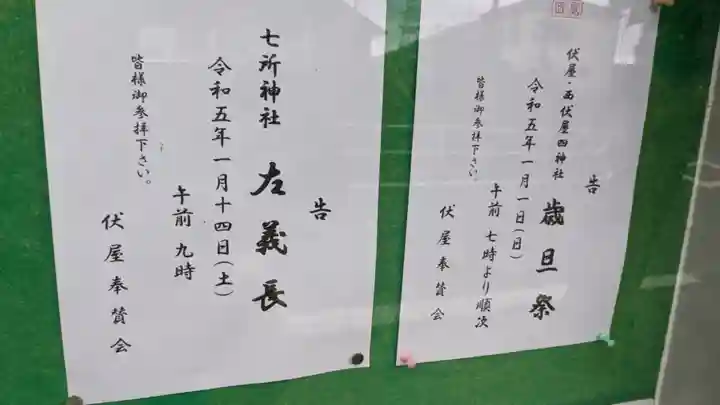 告
伏屋・西伏屋四神社 歳旦祭
令和五年一月一日(日)
午前 七時より順次
皆様御参拝下さい。
伏屋奉賛会
告
七所神社 左義長
令和五年一月十四日(土)
午前 九時
皆様御参拝下さい。
伏屋奉賛会